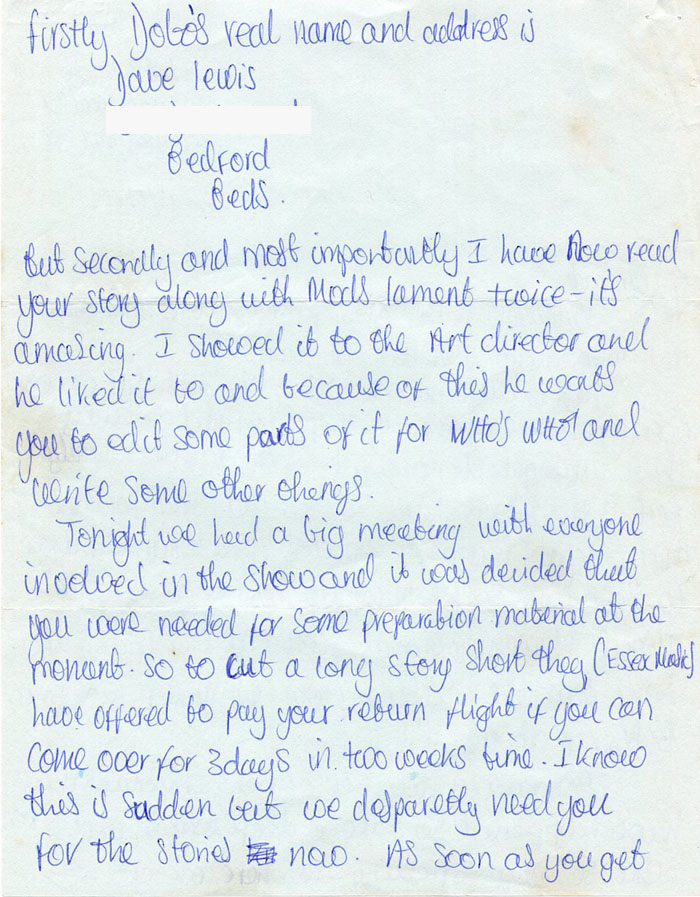 firstly Dobo's real name and address is
Dave Lewis
Bedford
Beds.
But Secondly and most importantly I have Now read
your story along with Mods lament twice - it's
amazing. I showed it to the Art director and
he liked it to and because of this he wants
you to edit some parts of it for WHO'S WHO? and
write some other things.
Tonight we had a big meeting with everyone
involved in the show and it was decided that
you were needed for some preparation material at the
moment. So to cut a long story short they, (ESSEX Music)
have offered to pay your return flight if you can
come over for 3 days in two weeks time. I know
this is sudden but we desparetly need you
for the stories now. As soon as you get